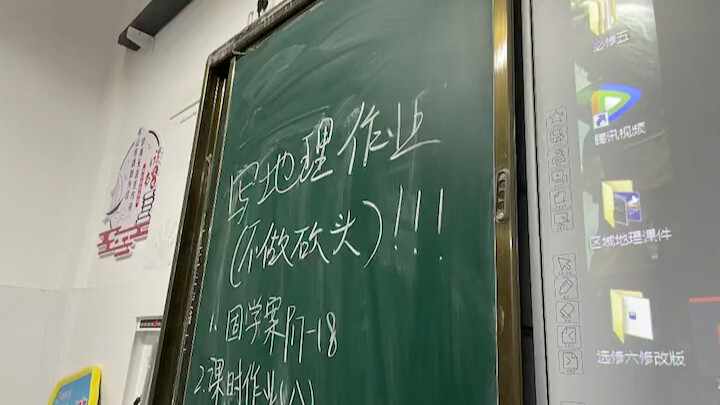 写地理作业
(不做砍头)!!!
1. 固学案P17-18
2.课时作业(八)
必修五
腾讯视频
区域地理课件
选修六修改版